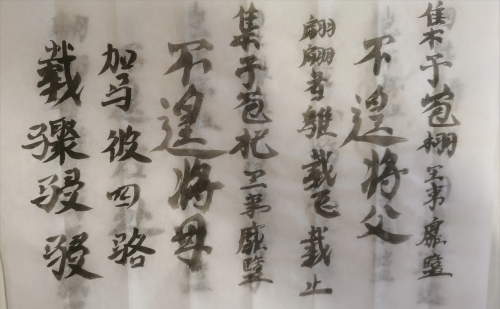 集于苞栩王事靡盬
不遑将父
翩翩者鵻载飞载止
集于苞杞王事靡盬
不遑将母
驾彼四骆
载骤骎骎